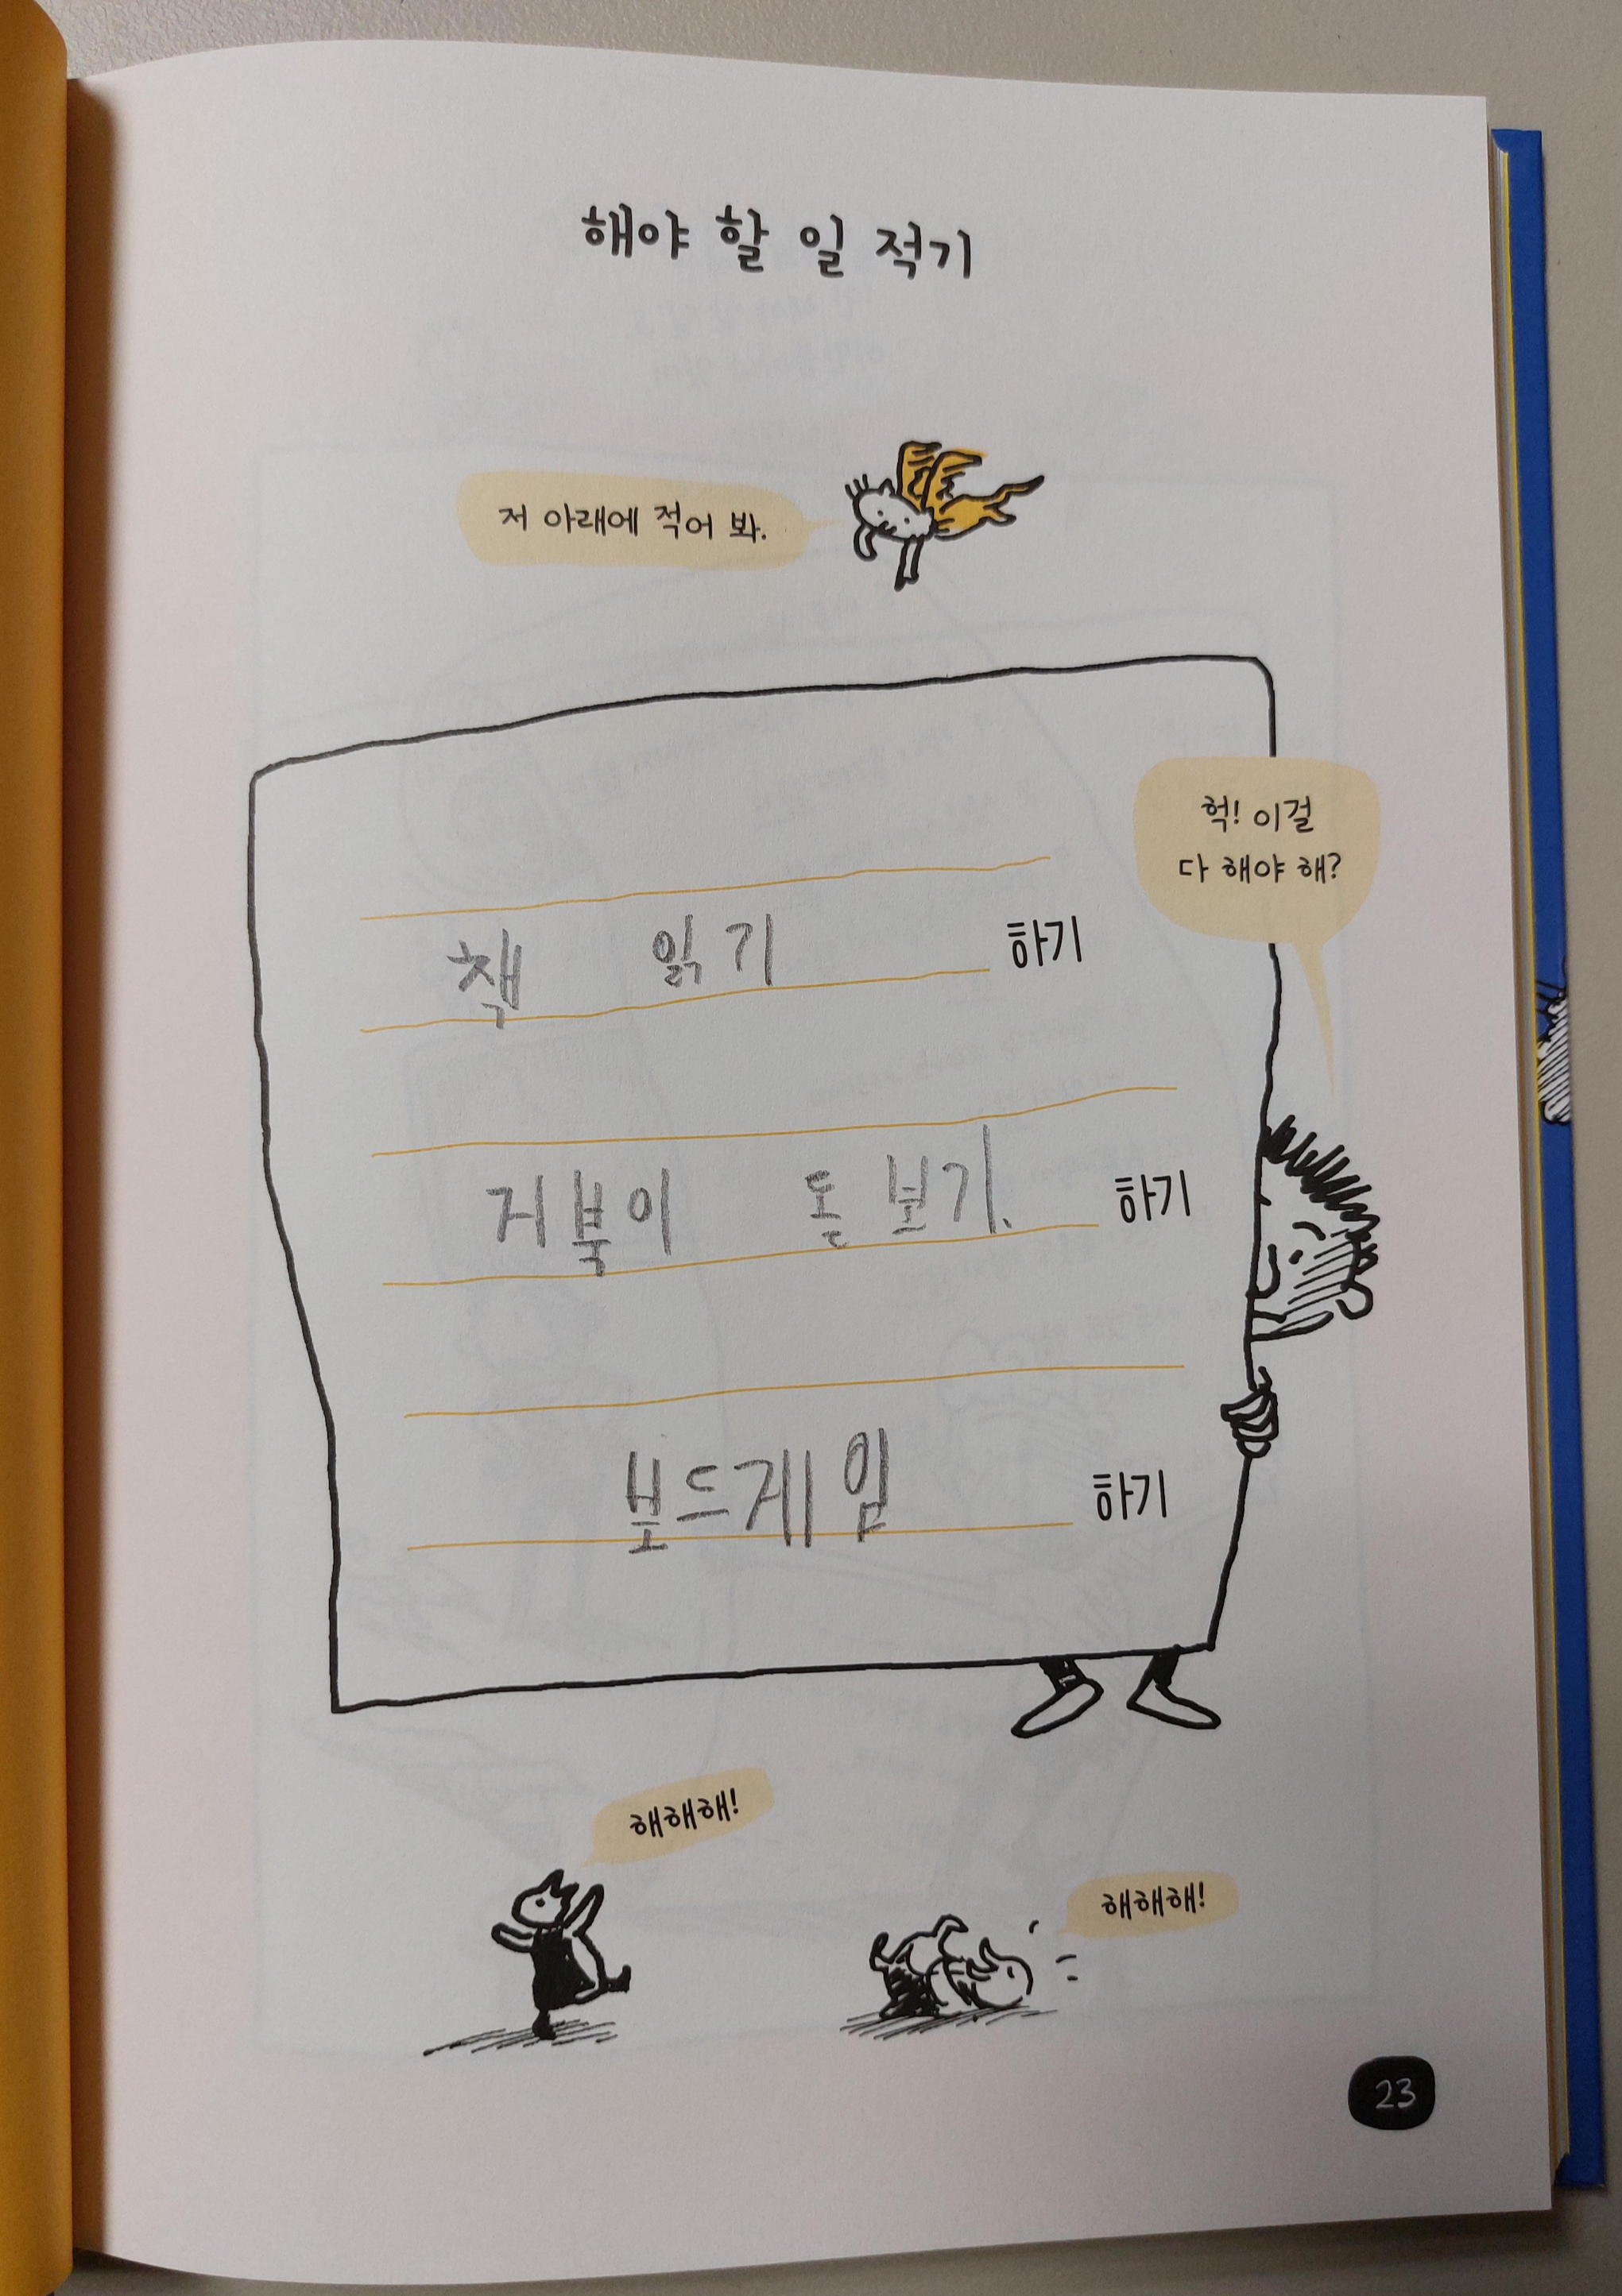 해야 할 일 적기
저 아래에 적어 봐.
헉! 이걸
다 해야 해?
책 읽기 하기
거북이 돌보기. 하기
보드게임 하기
해해해!
해해해!
23